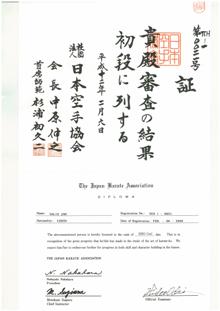 証
貴殿審査の結果
初段に列する
平成十二年二月六日
社団法人 日本空手協会
会長 中原伸之
首席師範 杉浦初久二
The Japan Karate Association
DIPLOMA
Name
Registration No.
Nationality
Date of Registration
The aforementioned person is hereby licensed in the rank of
This is in
recognition of the great progress that he/she has made in the study of the art of karate-do. We
expect him/her to endeavour further for progress in both skill and character building in the future.
THE JAPAN KARATE ASSOCIATION
N. Nakahara
Nobuyuki Nakahara
President
M. Sugiura
Motokuni Sugiura
Chief Instructor
Official Examiner